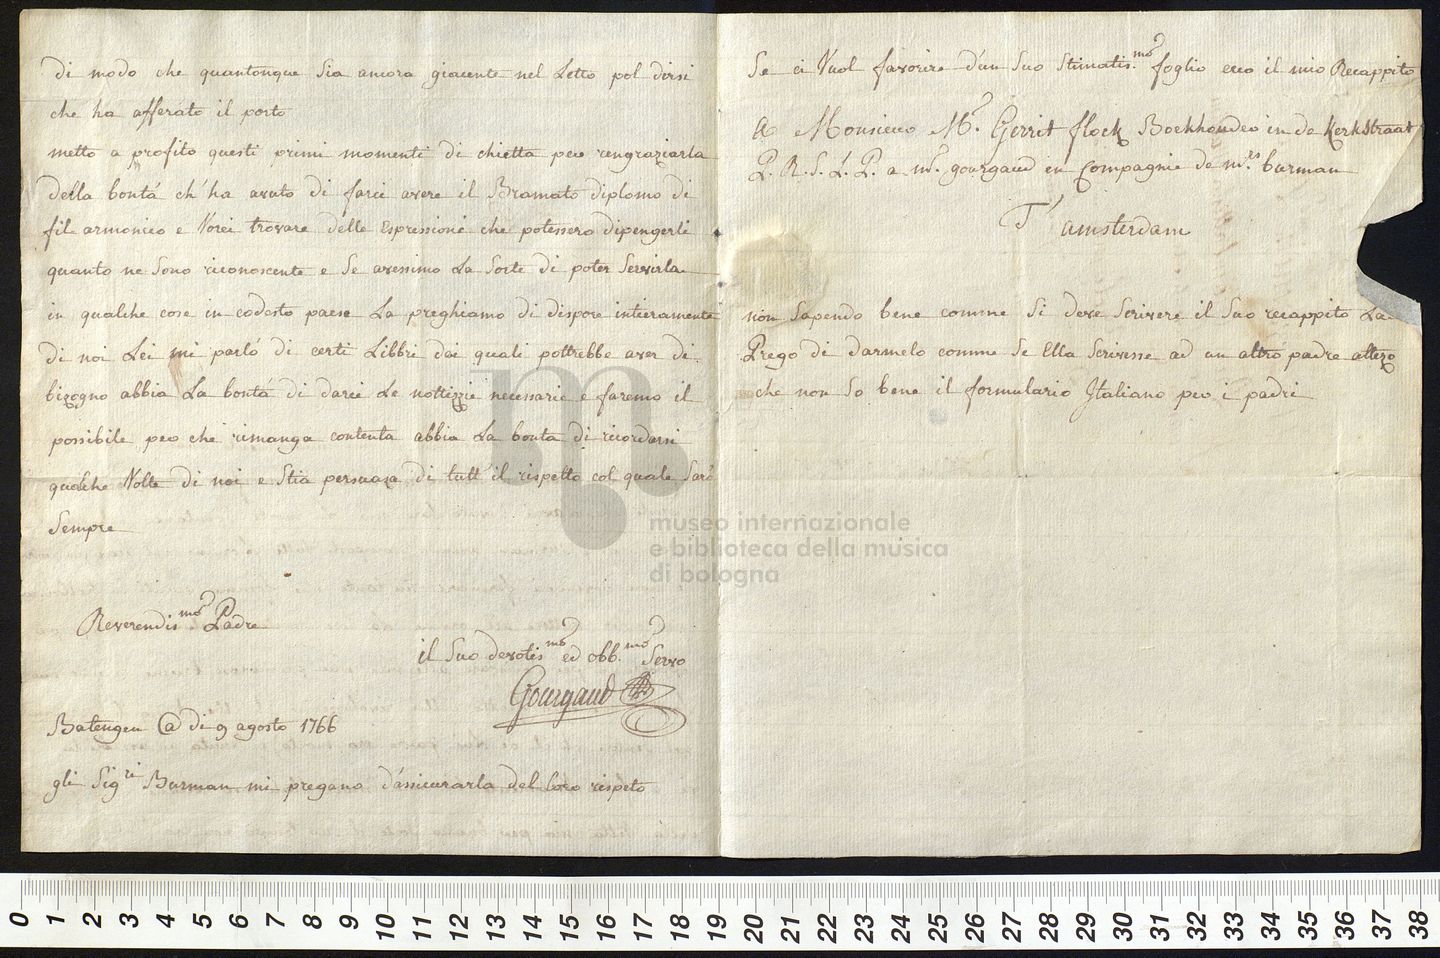 di modo che quantonque Sia ancora giacente nel Letto pol dirsi
che ha afferato il porto
metto a profito questi primi momenti di chietta per rengraziarla
della bontá ch'ha avuto di farci avere il Bramato diplomo di
fil armonico e Vorei trovare delle Espressioni che potessero dipengerli
quanto ne Sono riconoscente e Se avessimo La Sorte di poter Servirla
in qualche cose in codesto paese La preghiamo di dispore intieramente
di noi Lei mi parló di certi Libbri dai quali pottrebbe aver di
bizogno abbia La bontá di darci Le nottizzie necessarie e faremo il
possibile per che rimanga contenta abbia La bonta di ricordarsi
qualche Volte di noi e Stia persuaza di tutt'il rispetto col quale Saró
Sempre
Reverendis.mo Padre
il Suo devotis.mo ed obb.mo Servo
Gourgaud
Batengen @ di 9 agosto 1766
gli Sig.ri Burman mi pregano d'assicurarla del Loro rispeto
Se ci Vuol favorire d'un Suo Stimatis.mo foglio ecco il mio Recappito
A Monsieur M.r Gerrit flock Boekhouder in de KerkStraat
P. R. S. L. P. a m.r gourgaud en Compagnie de m.rs burman
T'amsterdam
non Sapendo bene comme Si deve Scrivere il Suo recappito La
Prego di darmelo comme Se Ella Scrivesse ad un altro padre
che non So bene il formulario Italiano per i padri
museo internazionale
e biblioteca della musica
di bologna
0 1 2 3 4 5 6 7 8 9 10 11 12 13 14 15 16 17 18 19 20 21 22 23 24 25 26 27 28 29 30 31 32 33 34 35 36 37 38